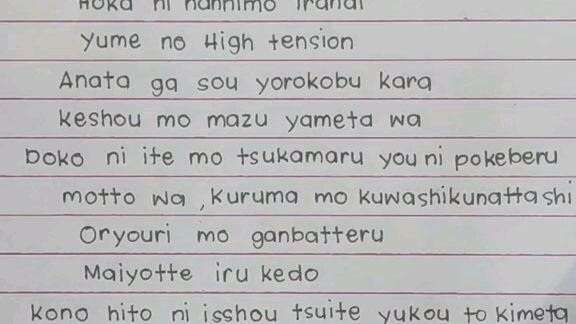 Hoka ni nannimo iranai
Yume no High tension
Anata ga sou yorokobu kara
keshou mo mazu yameta wa
Doko ni ite mo tsukamaru you ni pokeberu
motto wa , Kuruma mo kuwashikunatta shi
Oryouri mo ganbatteru
Maiyotte iru kedo
kono hito ni isshou tsuite yukou to kimeta